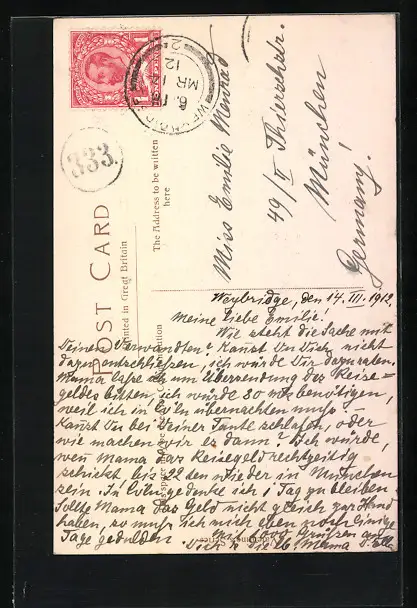 POST CARD
Printed in Great Britain
The Address to be written
here
WEYBRIDGE
MR 14
12
333.
Miss Emilie
49/II Thierschstr.
München
Germany!
Weybridge, den 14. III. 1912
Meine liebe Emilie!
Wie steht die Sache mit
Deinen Verwandten? Kannst Du Dich nicht
dazu entschließen, ich würde Dir dazu raten.
Mama lasse ich um Übersendung des Reise-
geldes bitten, ich würde 80 Mk benötigen,
weil ich in Cöln übernachten muß.
Kannst Du bei Deiner Tante schlafen, oder
wie machen wir es dann? Ich würde,
wenn Mama das Reisegeld rechtzeitig
schickt bis 22 ten wieder in München
sein. In Cöln gedenke ich 1 Tag zu bleiben.
Sollte Mama das Geld nicht gleich zur Hand
haben, so muß ich mich eben noch einige
Tage gedulden. Mit Grüßen an
Dich & die lb. Mama